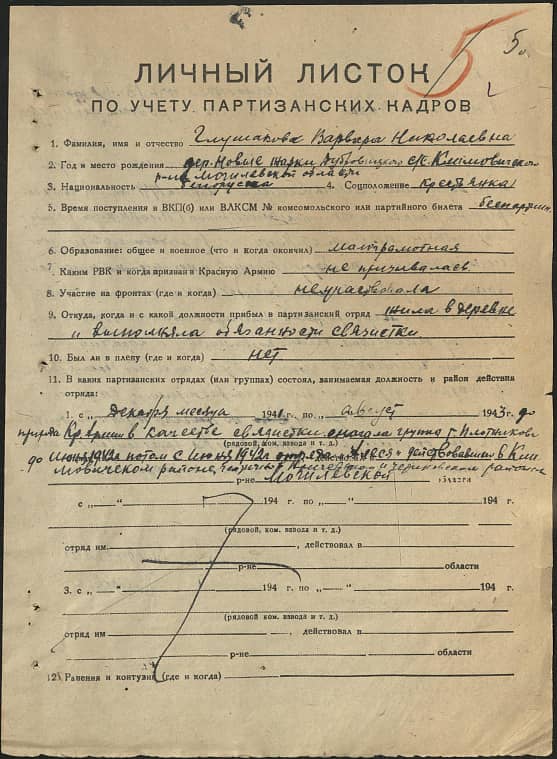 5
5
ЛИЧНЫЙ ЛИСТОК
ПО УЧЕТУ ПАРТИЗАНСКИХ КАДРОВ
1. Фамилия, имя и отчество Глушакова Варвара Николаевна
2. Год и место рождения дер. Новые Климовичского
р-на Могилевской области
3. Национальность белоруска 4. Соцположение крестьянка
5. Время поступления в ВКП(б) или ВЛКСМ № комсомольского или партийного билета беспартийн
6. Образование: общее и военное (что и когда окончил) малограмотная
7. Каким РВК и когда призван в Красную Армию не призывалась
8. Участие на фронтах (где и когда) не участвовала
9. Откуда, когда и с какой должности прибыл в партизанский отряд жила в деревне
и выполняла обязанности связистки
10. Был ли в плену (где и когда) нет
11. В каких партизанских отрядах (или группах) состоял, занимаемая должность и район действия
отряда:
1. с „ декабря месяца 1941 г. по „ август 1943 г. до
прихода Кр. Армии в качестве связистки сначала группа т. Плотникова
(рядовой, ком. взвода и т. д.)
до июня 1942 потом с июня 1942 отряда действовавший в Кли
мовичском районе, и Чериковском районах
р-не Могилевской области
с „—“ 194 г. по „—“ 194 г.
(рядовой, ком. взвода и т. д.)
отряд им. , действовал в
р-не области
3. с „—“ 194 г. по „—“ 194 г.
(рядовой, ком. взвода и т. д.)
отряд им , действовал в
р-не области
12. Ранения и контузии (где и когда)